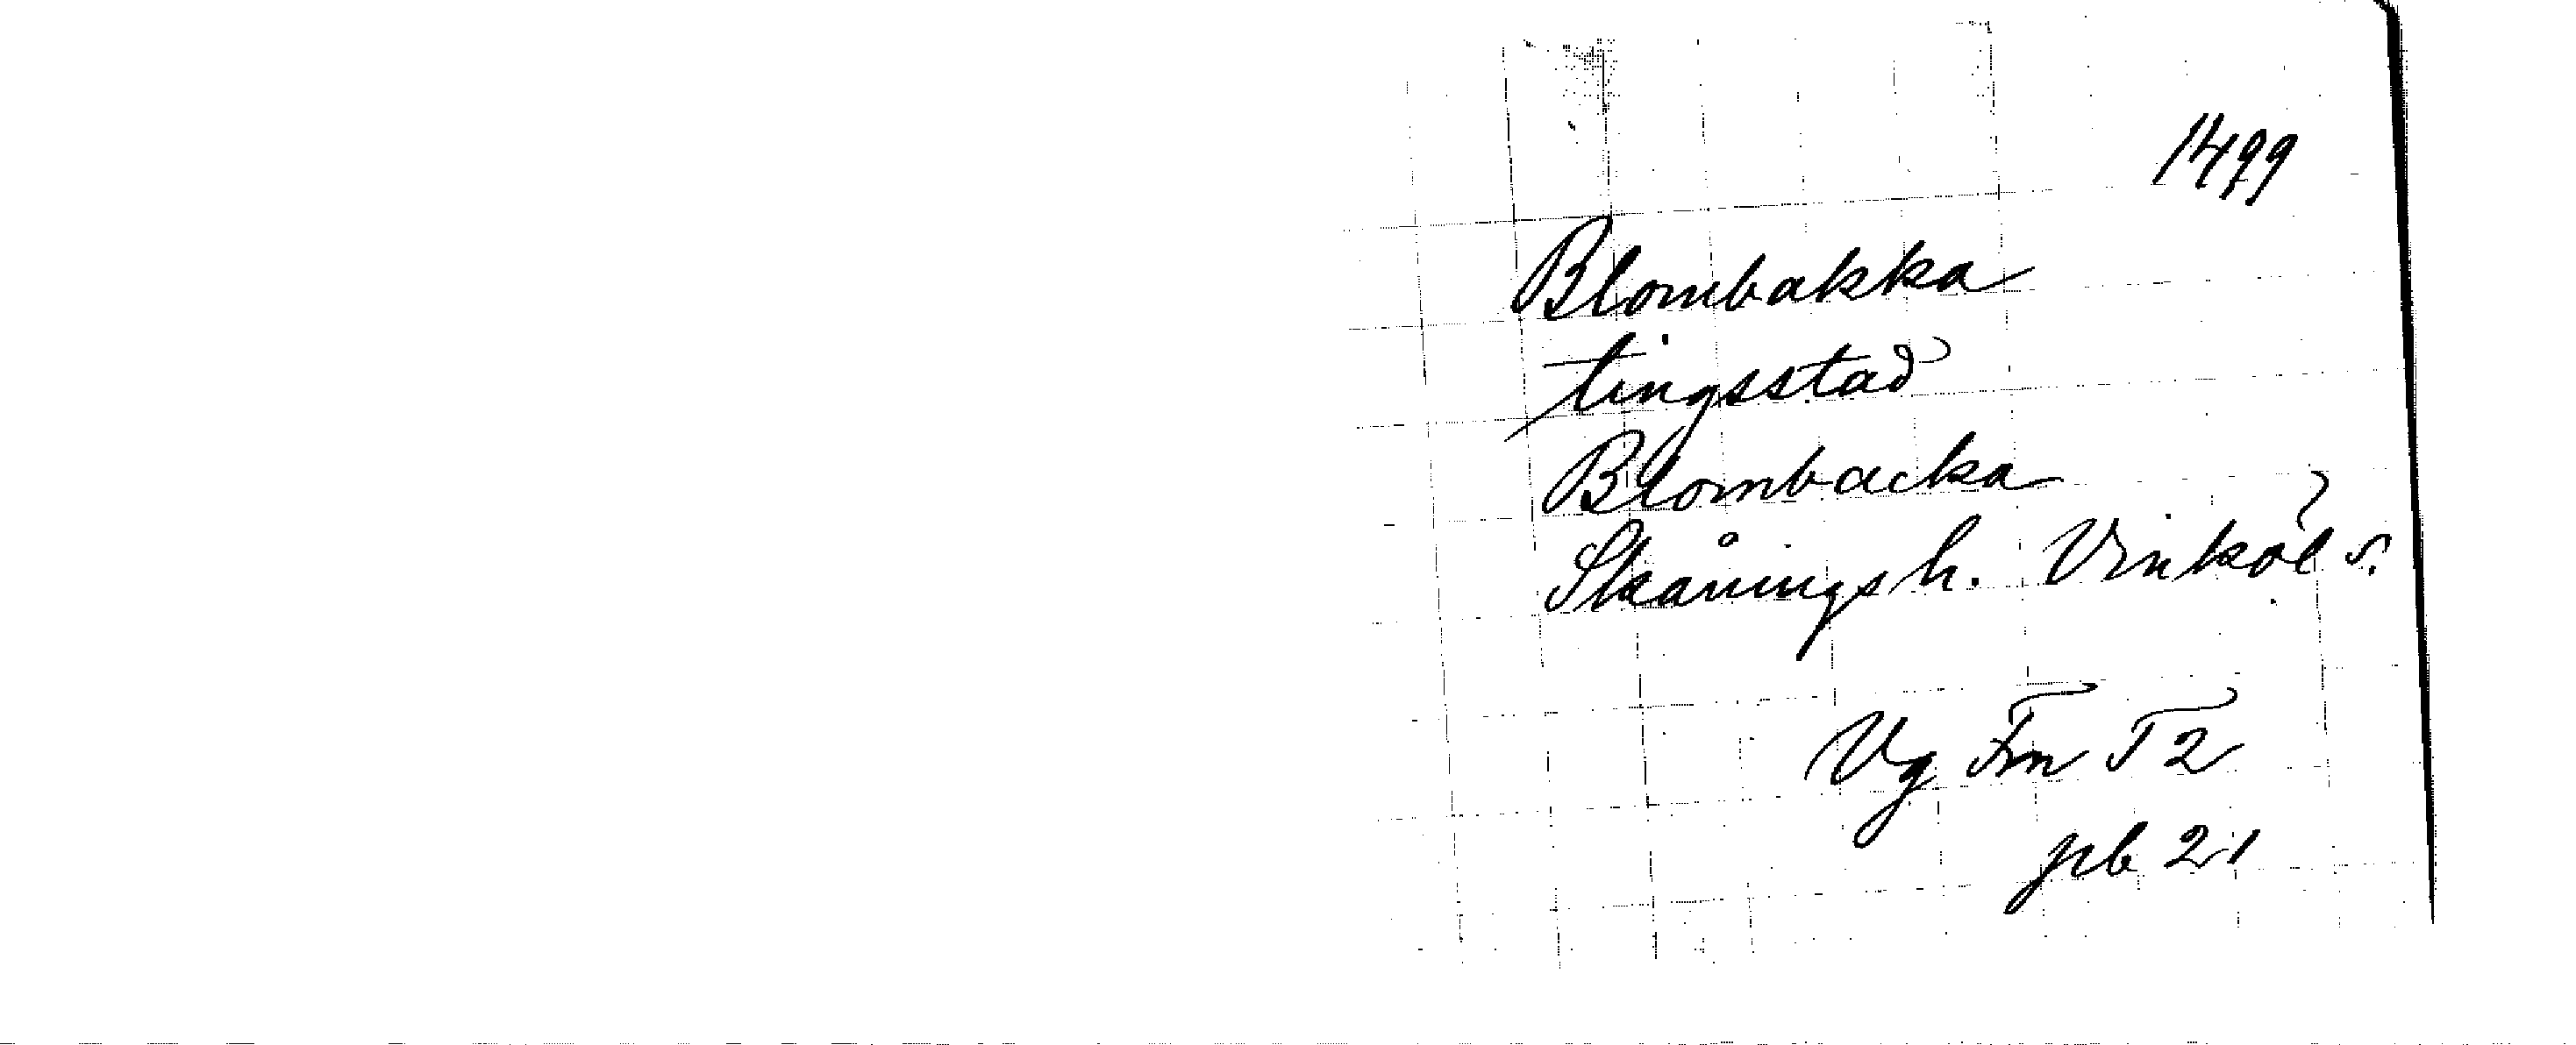 1499
Blombakka
tingsstad
Blombacka
Skånings h. Vinköl s.
Vg Fm T 2
pb 21